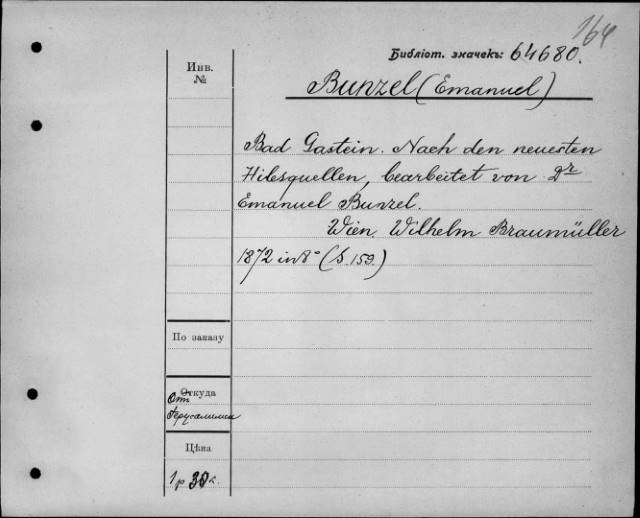 164
Библіот. значекъ: 64680.
Инв.
№
Bunzel (Emanuel)
Bad Gastein. Nach den neuesten
Hilesquellen, bearbeitet von Dr
Emanuel Bunzel.
Wien Wilhelm Braumüller
1872 in 8° (S. 159.)
По заказу
Откуда
От
Іерусалимск
Цѣна
1 р 35 к.